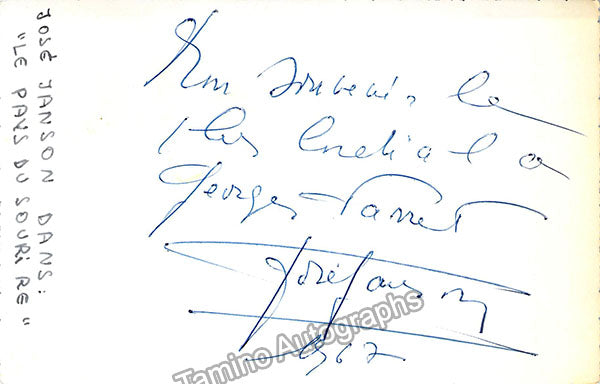 JOSÉ JANSON DANS:
"LE PAYS DU SOURIRE"
Mon souvenir le
plus cordial a
Georges Parret
José Janson
1967
Tamino Autographs